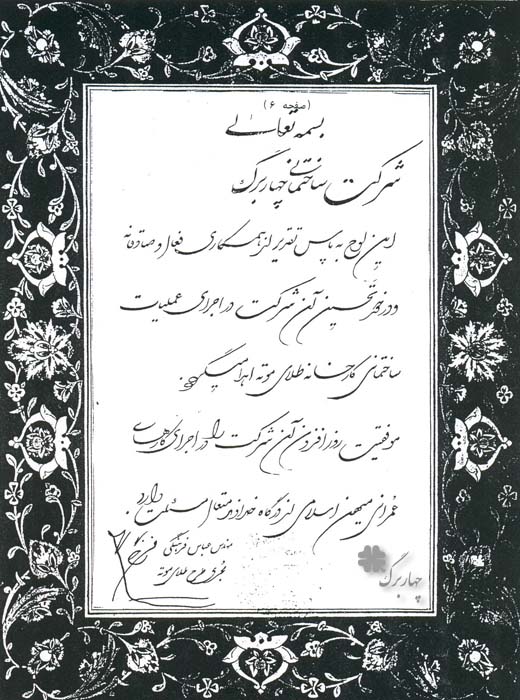 (صفحه ۶)
بسمه تعالی
شرکت ساختمانی چهاربرگ
این لوح به پاس تقدیر از همکاری فعال و صادقانه
و درخور تحسین آن شرکت در اجرای عملیات
ساختمانی کارخانه طلای موته اهدا میگردد.
موفقیت روزافزون آن شرکت را در اجرای کارهای
عمرانی میهن اسلامی از درگاه خداوند متعال مسئلت دارد.
مهندس عباس فرهنگی
مجری طرح طلای موته
چهاربرگ